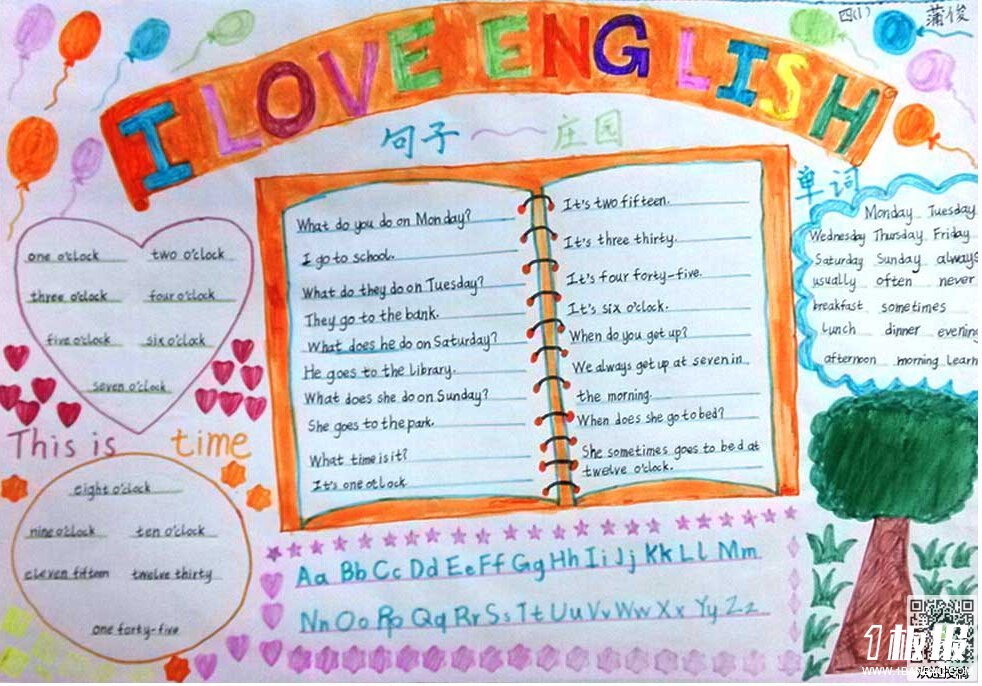 四(1) 蒲俊
I LOVE ENGLISH
句子～庄园
What do you do on Monday?
I go to school.
What do they do on Tuesday?
They go to the bank.
What does he do on Saturday?
He goes to the Library.
What does she do on Sunday?
She goes to the park.
What time is it?
It's one o'clock
It's two fifteen.
It's three thirty.
It's four forty-five.
It's six o'clock.
When do you get up?
We always get up at seven in
the morning.
When does she go to bed?
She sometimes goes to bed at
twelve o'clock.
单词
Monday Tuesday
Wednesday Thursday Friday
Saturday Sunday always
usually often never
breakfast sometimes
lunch dinner evening
afternoon morning learn
one o'clock two o'clock
three o'clock four o'clock
five o'clock six o'clock
seven o'clock
This is time
eight o'clock
nine o'clock ten o'clock
eleven fifteen twelve thirty
one forty-five
Aa Bb Cc Dd Ee Ff Gg Hh Ii Jj Kk Ll Mm
Nn Oo Pp Qq Rr Ss Tt Uu Vv Ww Xx Yy Zz
1板报
欢迎投稿